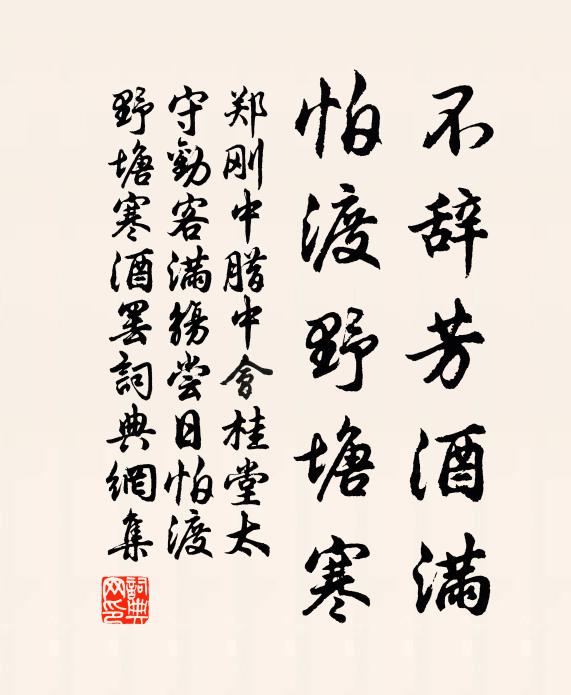 不辞芳酒满
怕渡野塘寒
郑刚中腊中会桂堂太
守勸客滿觴嘗日怕渡
野塘寒酒罢詞典網集
詞典
网印